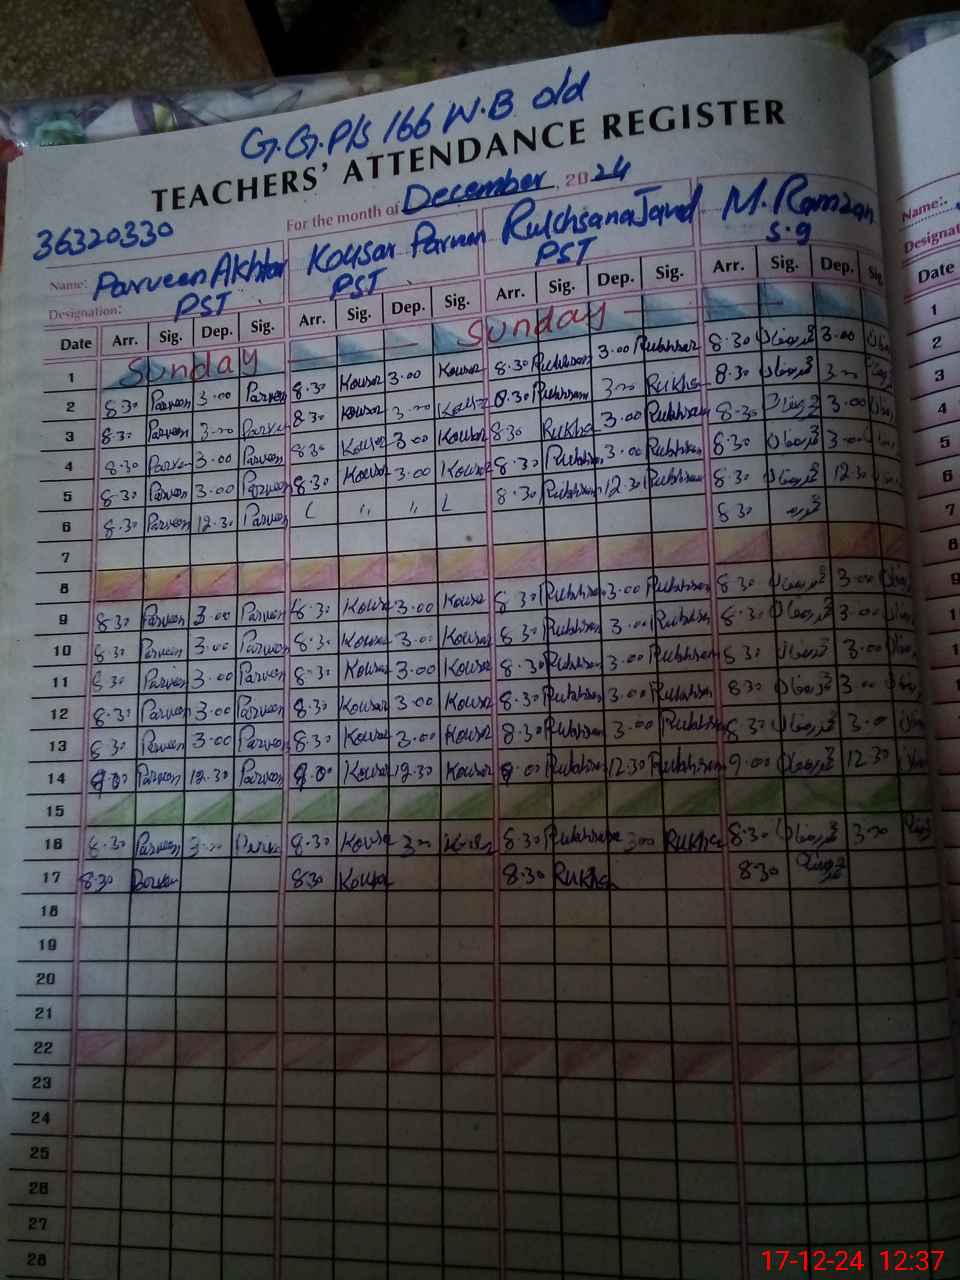 G.G.P/S 166 W.B old
TEACHERS' ATTENDANCE REGISTER
For the month of December 2024
36320330
Name: Parveen Akhtar Kousar Parveen Rukhsana Javed M. Ramzan
Designation: PST PST PST S.g
Date Arr. Sig. Dep. Sig. Arr. Sig. Dep. Sig. Arr. Sig. Dep. Sig. Arr. Sig. Dep. Sig
1 Sunday Sunday
2 8.30 Parveen 3.00 Parveen 8.30 Kousar 3.00 Kousar 8.30 Rukhsana 3.00 Rukhsana 8.30 3.00
3 8.30 Parveen 3.00 Parveen 8.30 Kousar 3.00 Kousar 8.30 Rukhsana 3.00 Rukhsana 8.30 3.00
4 8.30 Parveen 3.00 Parveen 8.30 Kousar 3.00 Kousar 8.30 Rukhsana 3.00 Rukhsana 8.30 3.00
5 8.30 Parveen 3.00 Parveen 8.30 Kousar 3.00 Kousar 8.30 Rukhsana 3.00 Rukhsana 8.30 3.00
6 8.30 Parveen 12.30 Parveen L " " L 8.30 Rukhsana 12.30 Rukhsana 8.30 12.30
7 8.30
8
9 8.30 Parveen 3.00 Parveen 8.30 Kousar 3.00 Kousar 8.30 Rukhsana 3.00 Rukhsana 8.30 3.00
10 8.30 Parveen 3.00 Parveen 8.30 Kousar 3.00 Kousar 8.30 Rukhsana 3.00 Rukhsana 8.30 3.00
11 8.30 Parveen 3.00 Parveen 8.30 Kousar 3.00 Kousar 8.30 Rukhsana 3.00 Rukhsana 8.30 3.00
12 8.30 Parveen 3.00 Parveen 8.30 Kousar 3.00 Kousar 8.30 Rukhsana 3.00 Rukhsana 8.30 3.00
13 8.30 Parveen 3.00 Parveen 8.30 Kousar 3.00 Kousar 8.30 Rukhsana 3.00 Rukhsana 8.30 3.00
14 9.00 Parveen 12.30 Parveen 9.00 Kousar 12.30 Kousar 9.00 Rukhsana 12.30 Rukhsana 9.00 12.30
15
16 8.30 Parveen 3.00 8.30 Kousar 3.00 Kousar 8.30 Rukhsana 3.00 Rukhsa 8.30 3.00
17 8.30 Parveen 8.30 Kousar 8.30 Rukhsa 8.30
18
19
20
21
22
23
24
25
26
27
28
Name:
Designat
Date
1
2
3
4
5
6
7
8
9
17-12-24 12:37